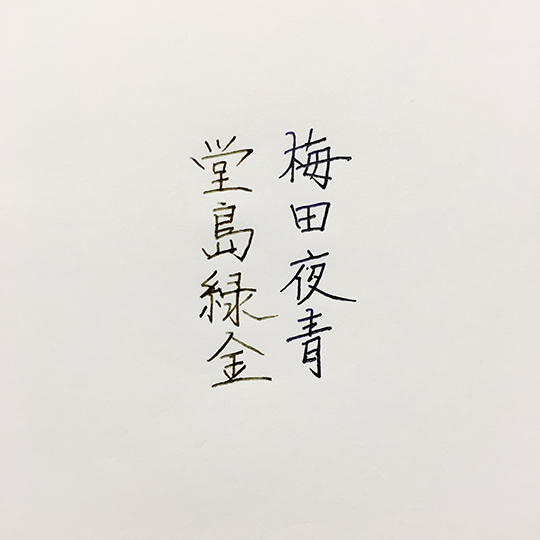 梅田夜青
堂島緑金